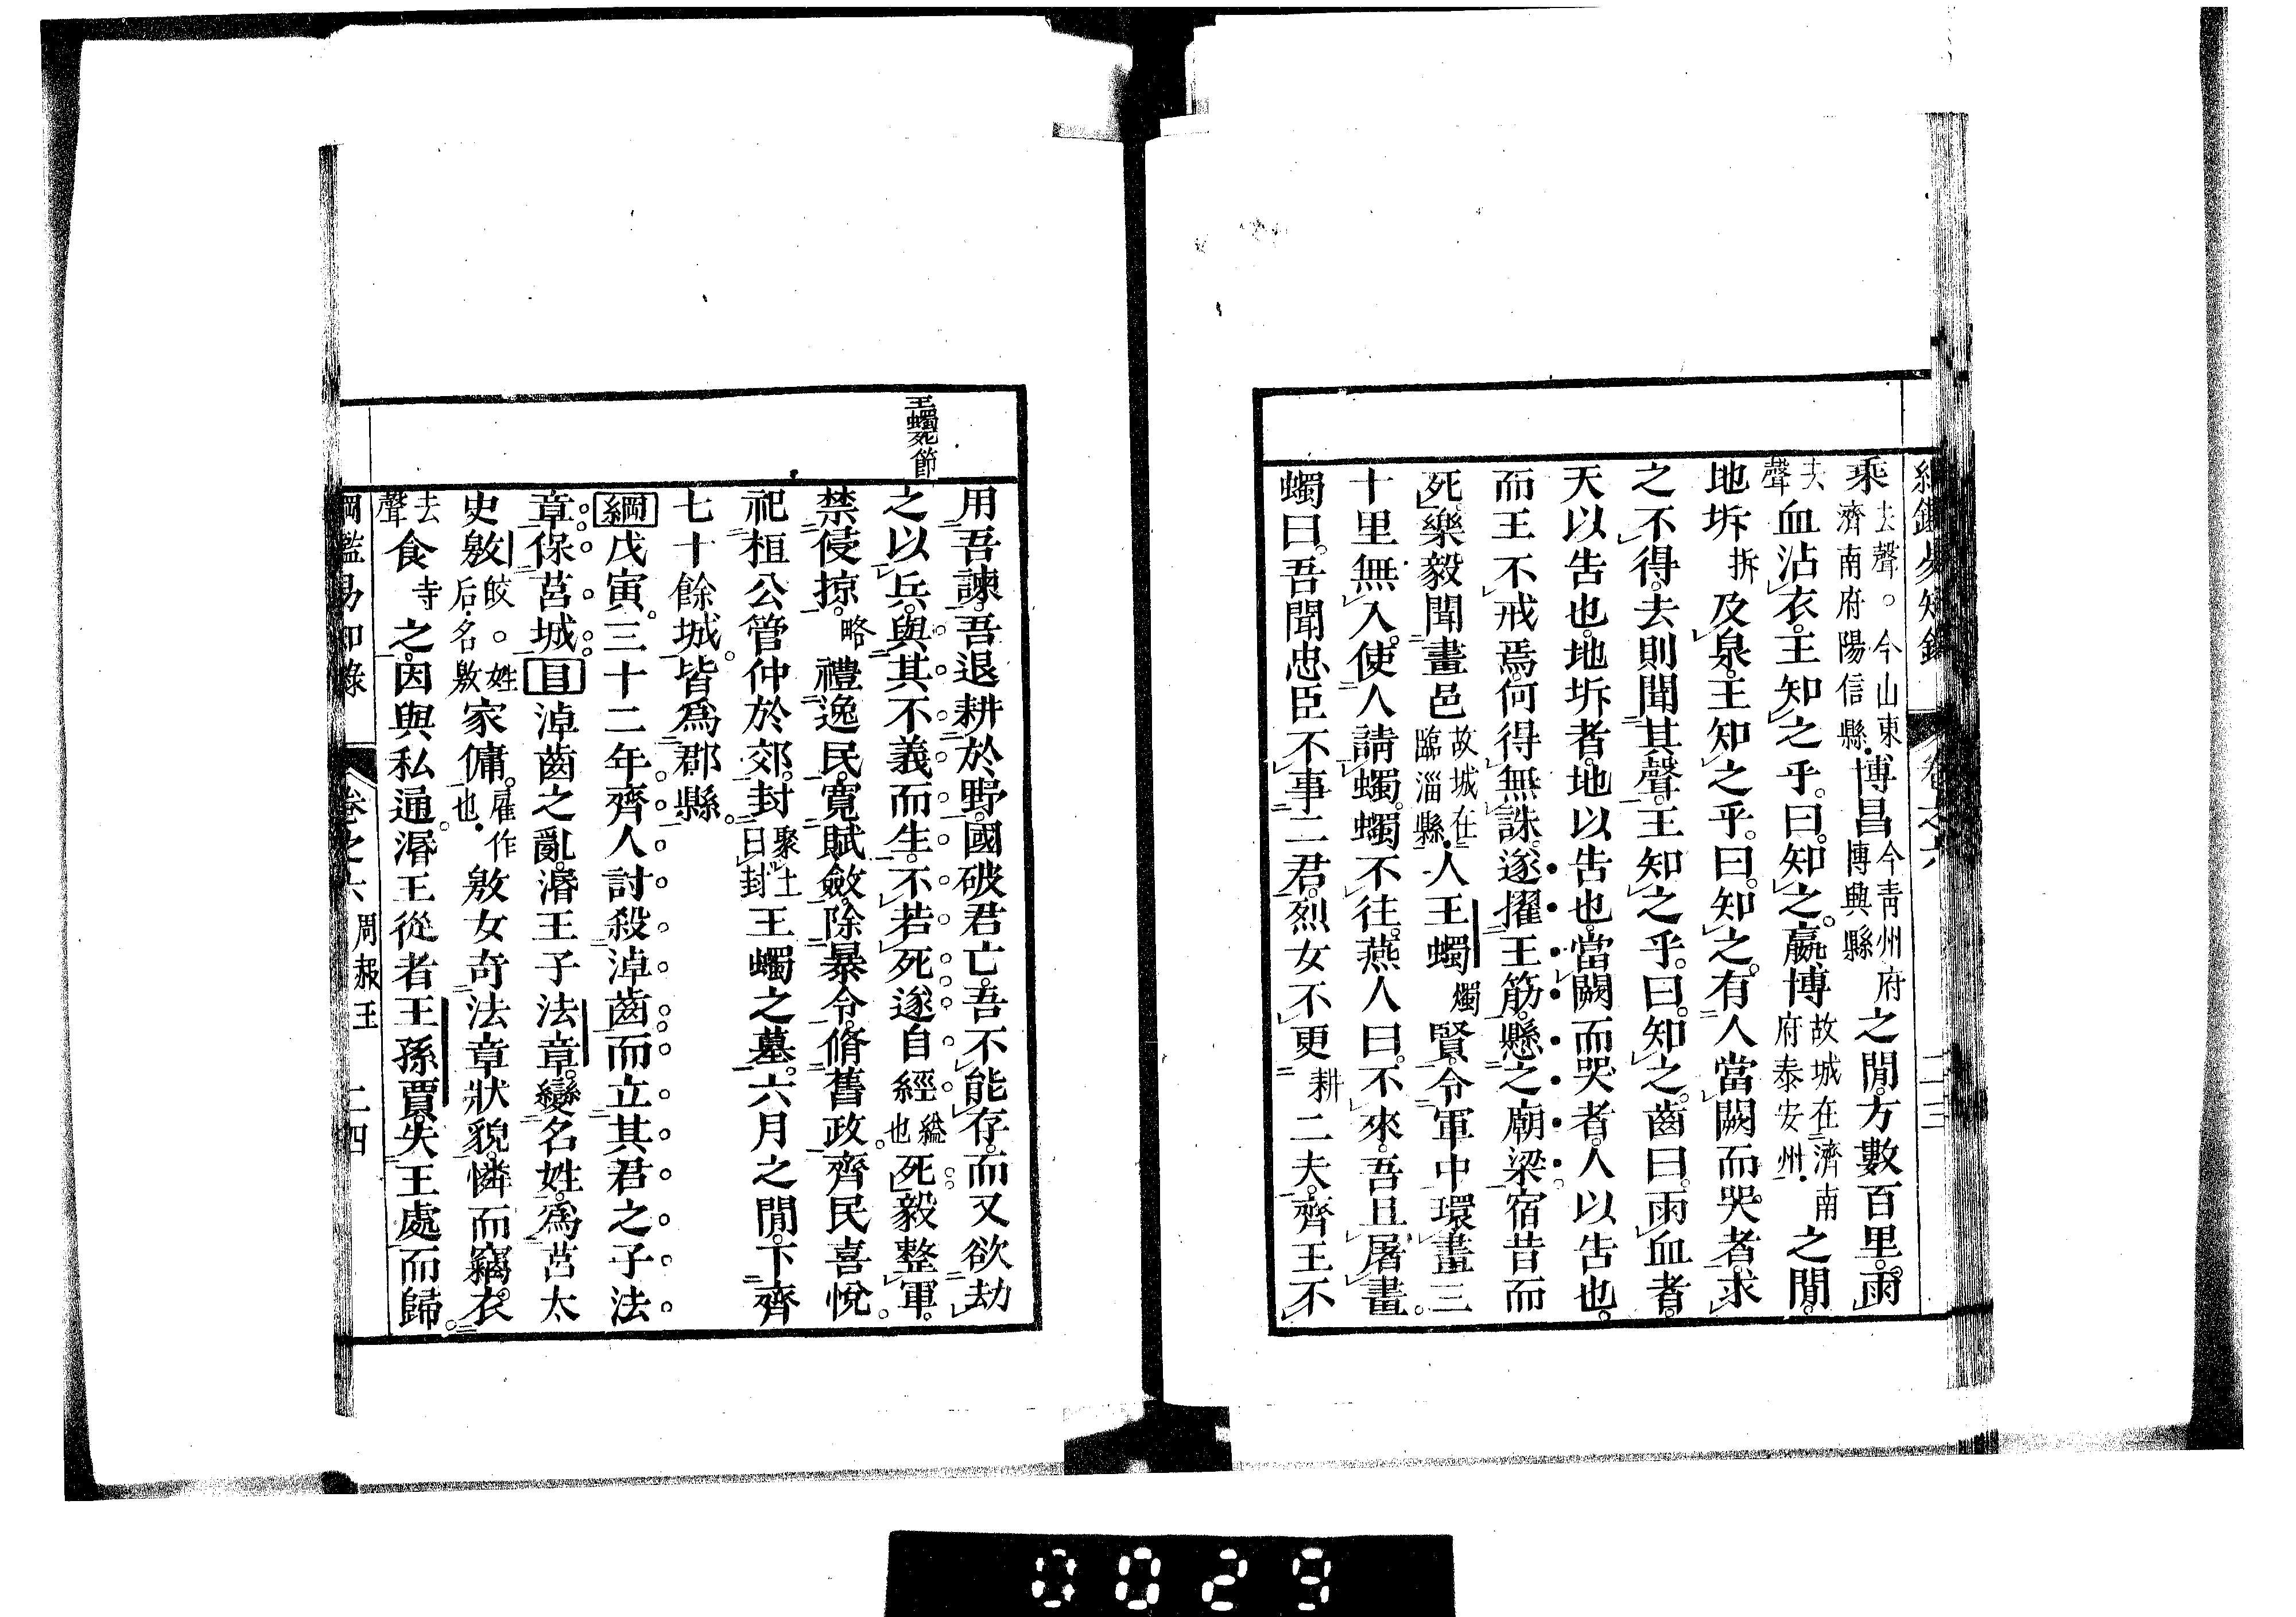 乘去聲。今山東濟南府陽信縣博昌今青州府博興縣之閒。方數百里。雨
去聲血沾衣。王知之乎。曰。知之。嬴博故城在濟南府泰安州之閒。
地坼拆及泉。王知之乎。曰。知之。有人當闕而哭者。求
之不得。去則聞其聲。王知之乎。曰。知之。齒曰。雨血者。
天以告也。地坼者。地以告也。當闕而哭者。人以告也。
而王不戒焉。何得無誅。遂擢王筋。懸之廟梁。宿昔而
死。樂毅聞畫邑故城在臨淄縣人王蠋燭賢。令軍中環畫三
十里無入。使人請蠋。蠋不往。燕人曰。不來。吾且屠畫。
蠋曰。吾聞忠臣不事二君。烈女不更耕二夫。齊王不
卷之六
二三
王蠋死節
用吾諫。吾退耕於野。國破君亡。吾不能存。而又欲劫
之以兵。與其不義而生。不若死。遂自經縊也死。毅整軍。
禁侵掠。略禮逸民。寬賦斂。除暴令。脩舊政。齊民喜悅。
祀桓公管仲於郊。封聚土曰封王蠋之墓。六月之閒。下齊
七十餘城。皆爲郡縣。
綱戊寅。三十二年。齊人討殺淖齒。而立其君之子法
章。保莒城。目淖齒之亂。湣王子法章。變名姓。爲莒太
史敫皎。姓后名敫家傭。雇作也敫女奇法章狀貌。憐而竊衣
去聲食寺之。因與私通。湣王從者王孫賈。失王處而歸。
綱鑑易知錄 卷之六 周赧王 二四
0029